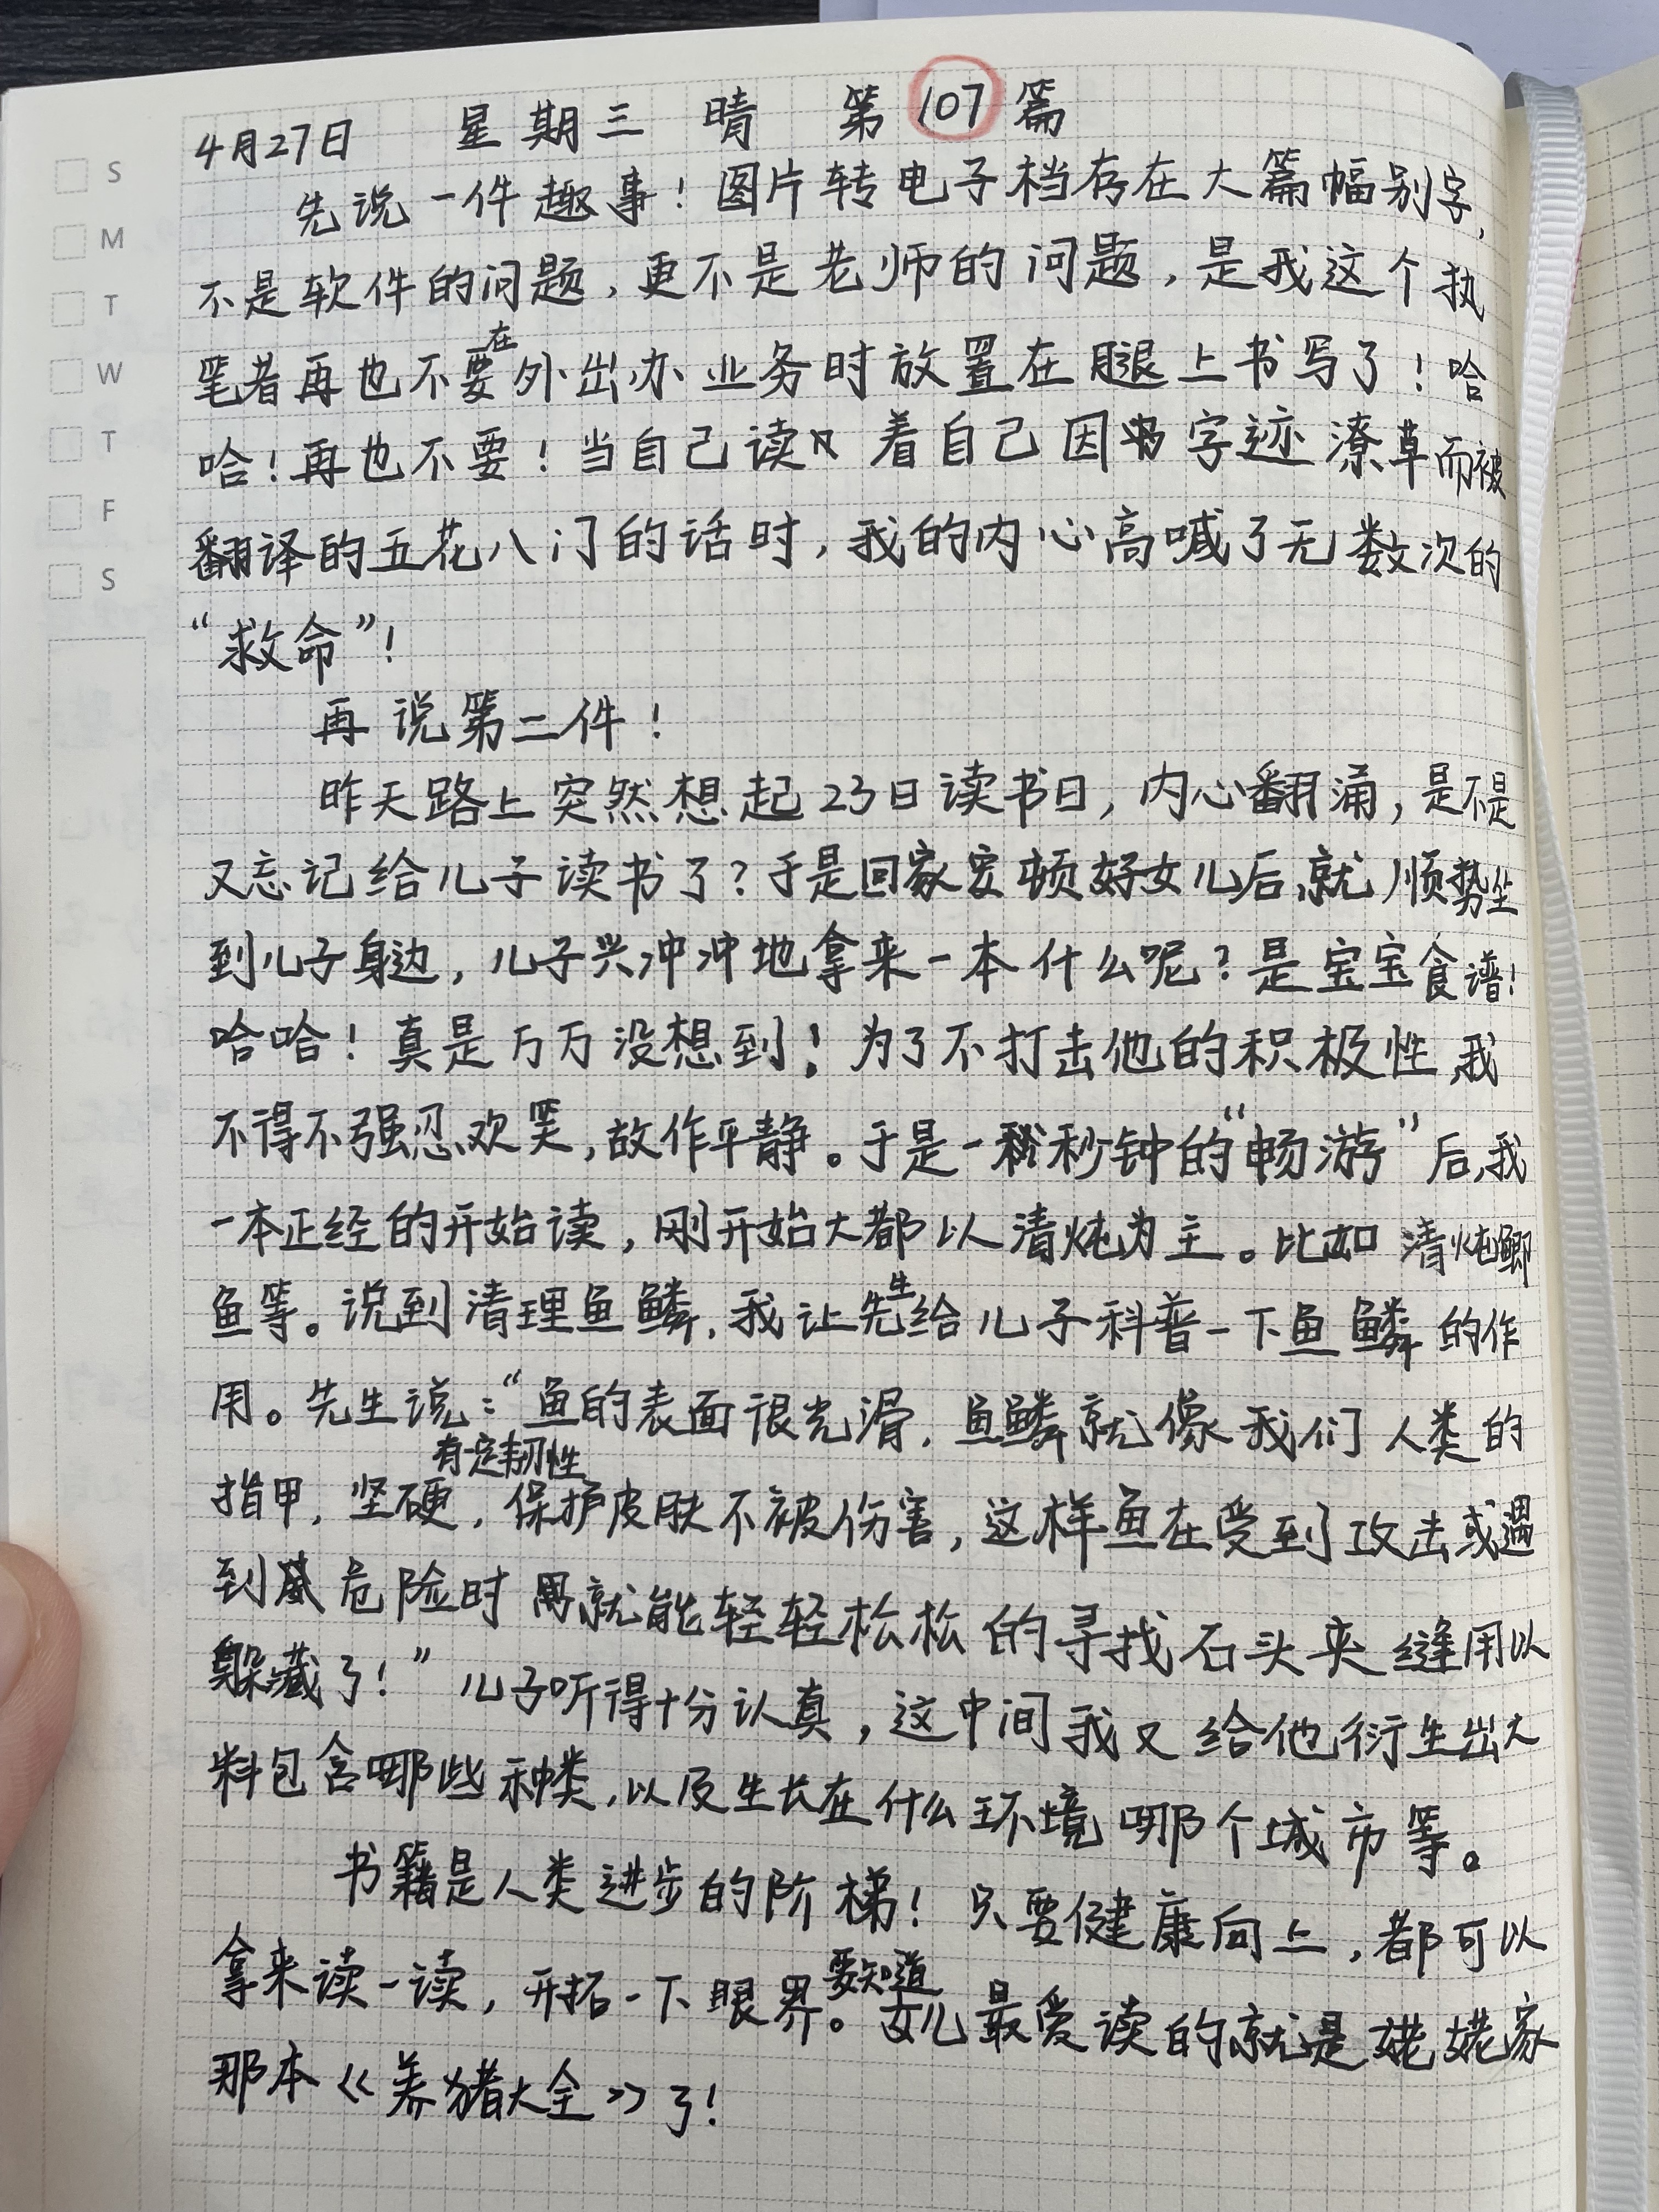 4月27日 星期三 晴 第107篇
S
M
T
W
T
F
S
先说一件趣事！图片转电子档存在大篇幅别字，
不是软件的问题，更不是老师的问题，是我这个执
笔者再也不要在外出办业务时放置在腿上书写了！哈
哈！再也不要！当自己读着自己因字迹潦草而被
翻译的五花八门的话时，我的内心高喊了无数次的
“救命”！
再说第二件！
昨天路上突然想起23日读书日，内心翻涌，是不是
又忘记给儿子读书了？于是回家安顿好女儿后，就顺势坐
到儿子身边，儿子兴冲冲地拿来一本什么呢？是宝宝食谱！
哈哈！真是万万没想到！为了不打击他的积极性，我
不得不强忍欢笑，故作平静。于是一秒钟的“畅游”后，我
一本正经的开始读，刚开始大都以清炖为主。比如清炖鲫
鱼等。说到清理鱼鳞，我让先生给儿子科普一下鱼鳞的作
用。先生说：“鱼的表面很光滑，鱼鳞就像我们人类的
指甲，坚硬有定韧性，保护皮肤不被伤害，这样鱼在受到攻击或遇
到危险时就能轻轻松松的寻找石头夹缝用以
躲藏了！”儿子听得十分认真，这中间我又给他衍生出大
料包含哪些种类，以及生长在什么环境哪个城市等。
书籍是人类进步的阶梯！只要健康向上，都可以
拿来读一读，开拓一下眼界。要知道女儿最爱读的就是姥姥家
那本《养猪大全》了！